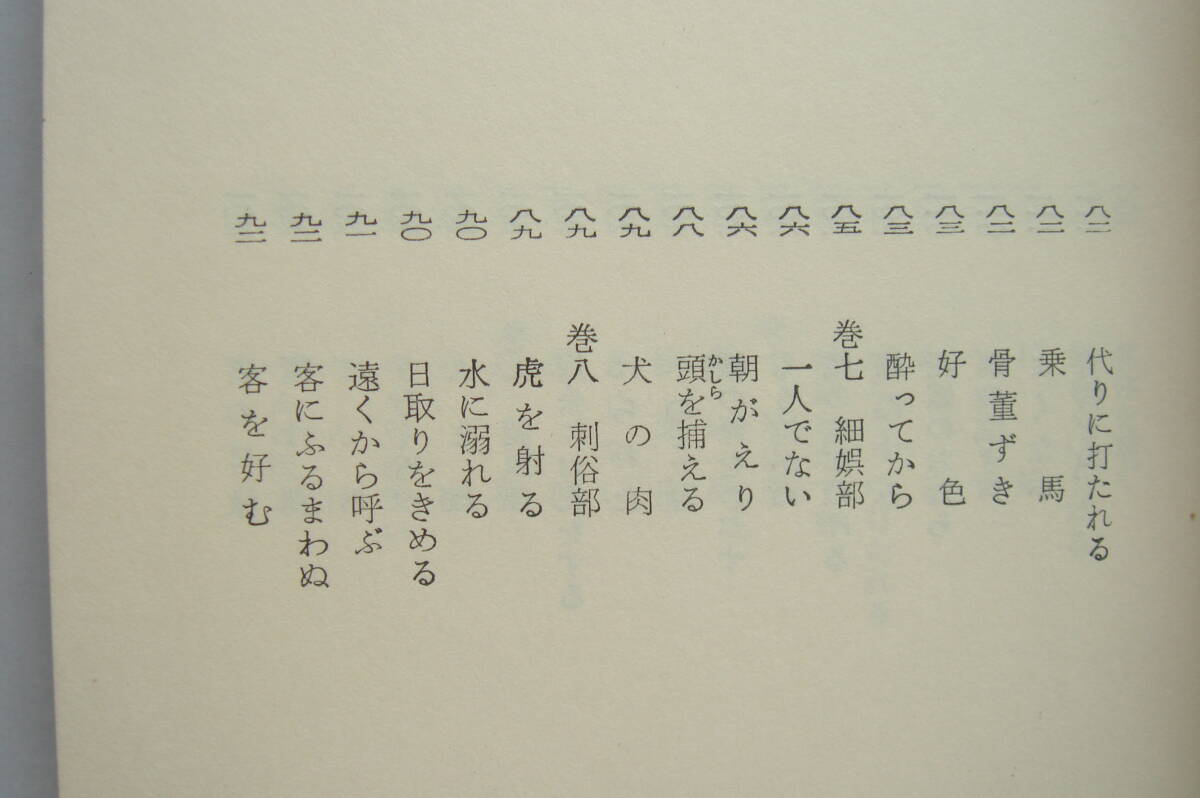 八二 代りに打たれる
八二 乗馬
八二 骨董ずき
八三 好色
八三 酔ってから
八五 巻七 細娯部
八六 一人でない
八六 朝がえり
八八 頭を捕える
かしら
八九 犬の肉
八九 巻八 刺俗部
八九 虎を射る
九〇 水に溺れる
九〇 日取りをきめる
九一 遠くから呼ぶ
九二 客にふるまわぬ
九二 客を好む